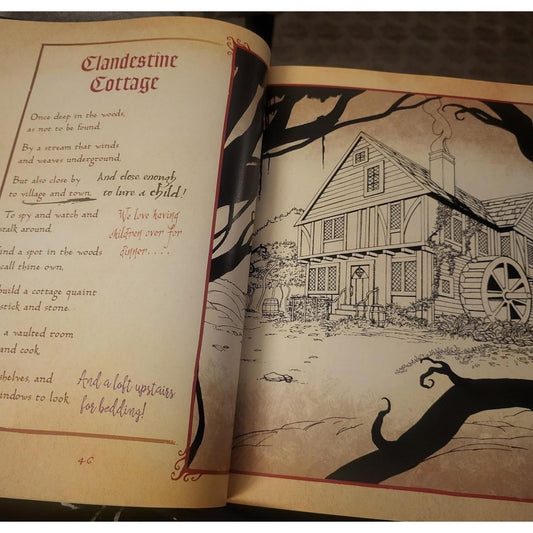 Clandestine
Cottage
Once deep in the woods,
as not to be found.
By a stream that winds
and weaves underground.
But also close by
to village and town.
And close enough
to lure a child!
To spy and watch and
stalk around.
We love having
children over for
dinner. . . .
find a spot in the woods
call thine own,
build a cottage quaint
stick and stone.
a vaulted room
and cook
shelves, and
windows to look
And a loft upstairs
for bedding!
46